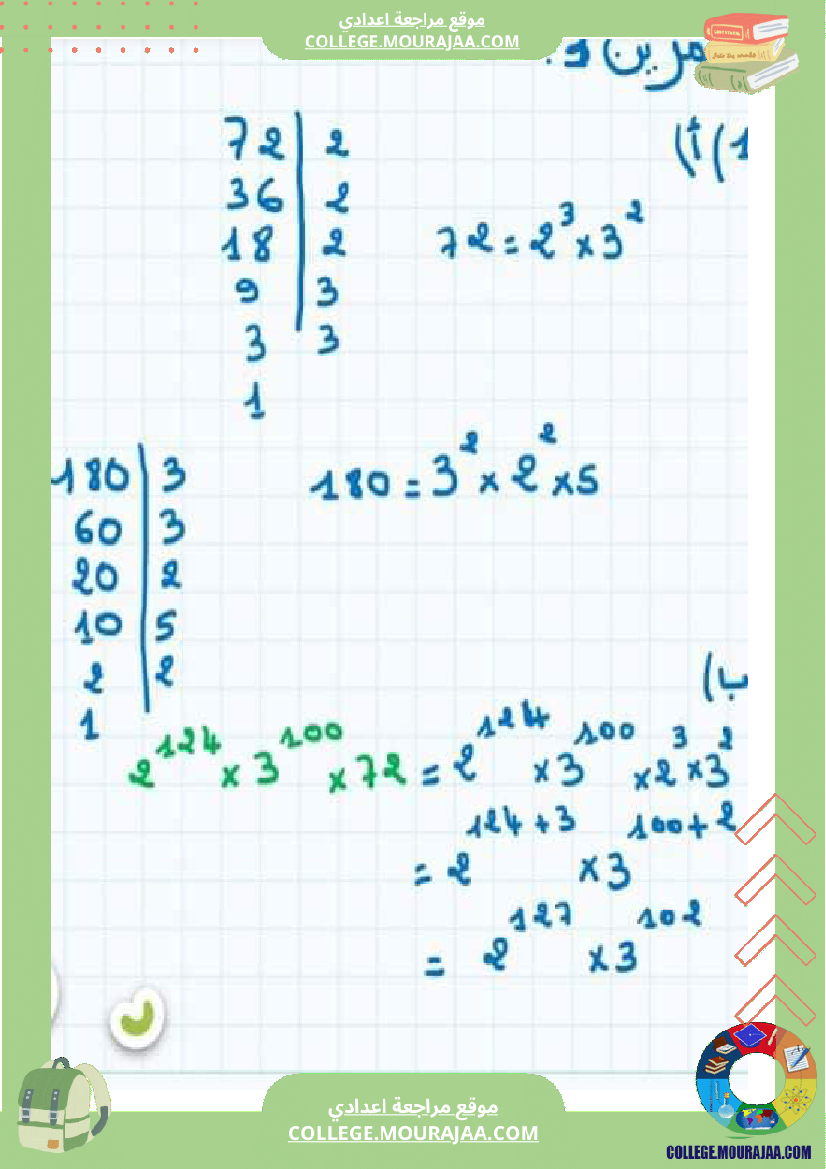 موقع مراجعة اعدادي
COLLEGE.MOURAJAA.COM
1) أ)
72 | 2
36 | 2
18 | 2
9 | 3
3 | 3
1
72 = 2³ × 3²
180 | 3
60 | 3
20 | 2
10 | 5
2 | 2
1
180 = 3² × 2² × 5
ب)
2¹²⁴ × 3¹⁰⁰ × 72 = 2¹²⁴ × 3¹⁰⁰ × 2³ × 3²
= 2¹²⁴⁺³ × 3¹⁰⁰⁺²
= 2¹²⁷ × 3¹⁰²
موقع مراجعة اعدادي
COLLEGE.MOURAJAA.COM
COLLEGE.MOURAJAA.COM